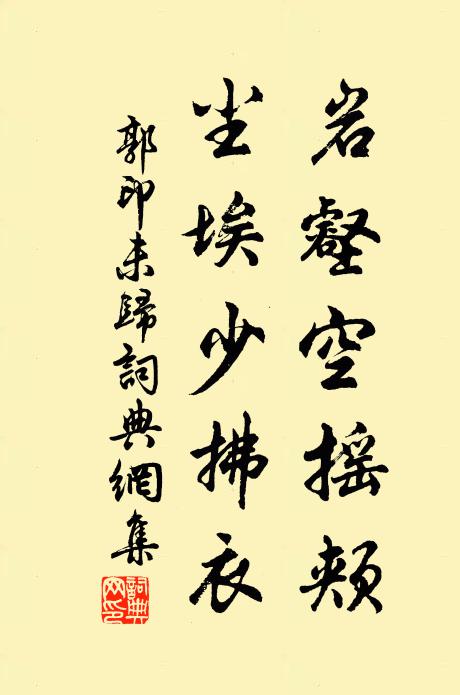 岩壑空摇颊
尘埃少拂衣
郭印未歸詞典網集
詞典网印